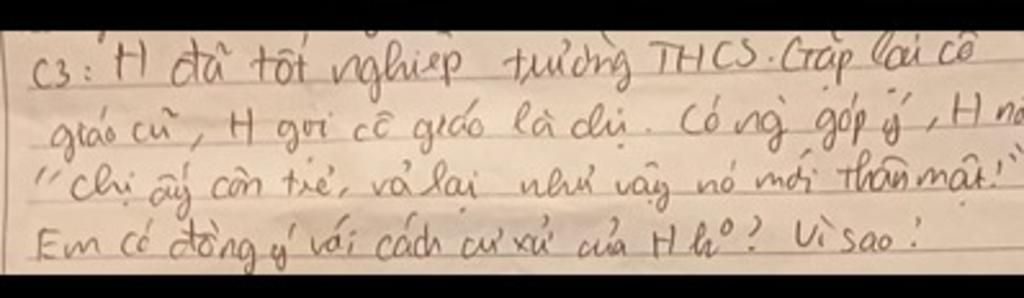 C3: H đã tốt nghiệp trường THCS. Gặp lại cô
giáo cũ, H gọi cô giáo là chị. Có ng góp ý, H nó
"Chị ấy còn trẻ, vả lại như vậy nó mới thân mật!"
Em có đồng ý với cách cư xử của H ko? Vì sao?